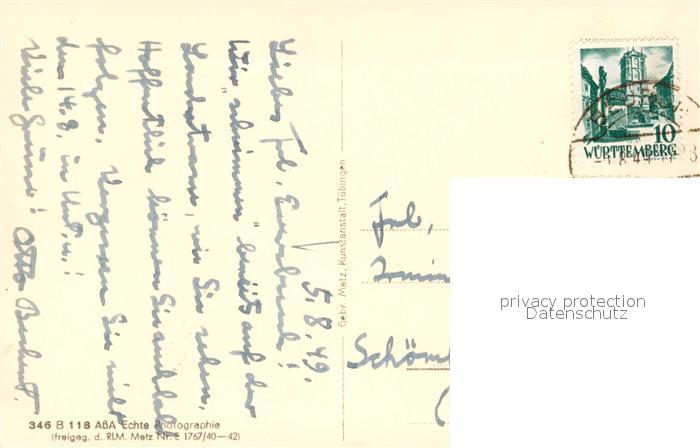 5.8.49.
Liebes Frl.
Wir "schwimmen" bereits auf der
Landstrasse, wie Sie sehen,
Hoffentlich können Sie alsbald
folgen. Vergessen Sie nicht
den 14.8. in
Viele Grüsse! Otto
346 B 118 ABA Echte Photographie
(freigeg. d. RLM. Metz Nr. E 1767/40—42)
Gebr. Metz, Kunstanstalt, Tübingen
10
WÜRTTEMBERG
Frl.
Schöm
privacy protection
Datenschutz